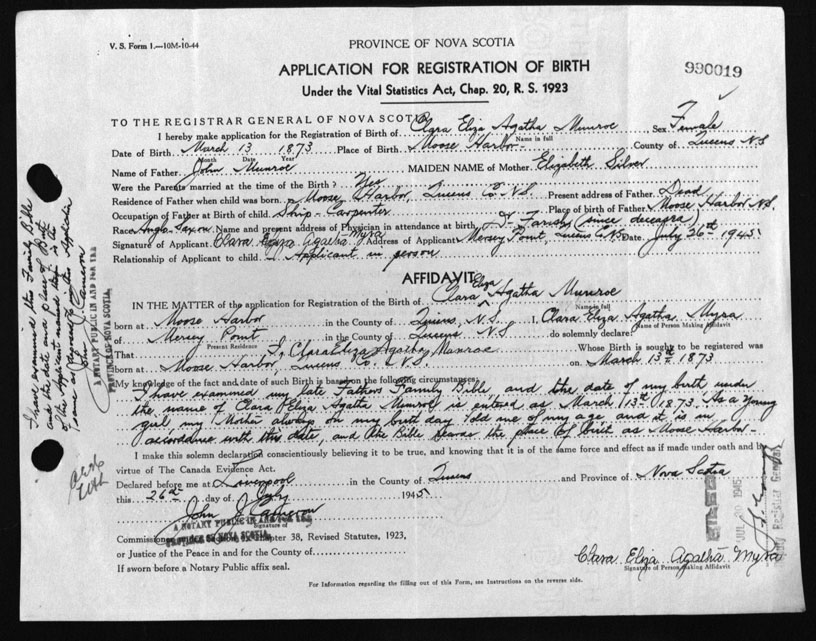 V. S. Form 1.—10M-10-44
PROVINCE OF NOVA SCOTIA
APPLICATION FOR REGISTRATION OF BIRTH
Under the Vital Statistics Act, Chap. 20, R. S. 1923
990019
TO THE REGISTRAR GENERAL OF NOVA SCOTIA
I hereby make application for the Registration of Birth of Clara Eliza Agatha Munroe Sex Female
Name in full
Date of Birth March 13 1873 Place of Birth Moose Harbor County of Queens N.S
Month Date Year
Name of Father John Munroe MAIDEN NAME of Mother Elizabeth Silver
Were the Parents married at the time of the Birth? Yes
Residence of Father when child was born Moose Harbor, Queens Co. N.S. Present address of Father Dead
Occupation of Father at Birth of child Ship-Carpenter Place of birth of Father Moose Harbor N.S.
Race Anglo-Saxon Name and present address of Physician in attendance at birth (since deceased)
Signature of Applicant Clara Eliza Agatha Myra Address of Applicant Mersey Point Queens Co. N.S. Date July 26th 1945
Relationship of Applicant to child Applicant in person
AFFIDAVIT
IN THE MATTER of the application for Registration of the Birth of Clara Eliza Agatha Munroe
Name in full
born at Moose Harbor in the County of Queens, N.S. I, Clara Eliza Agatha Myra
Name of Person Making Affidavit
of Mersey Point in the County of Queens N.S do solemnly declare:
Present Residence
That I, Clara Eliza Agatha Munroe Whose Birth is sought to be registered was
born at Moose Harbor, Queens Co. N.S. on March 13th 1873
My knowledge of the fact and date of such Birth is based on the following circumstances:
I have examined my late Fathers Family Bible and the date of my birth under
the name of Clara Eliza Agatha Munroe is entered as March 13th 1873. As a young
girl, my Mother always on my birthday told me of my age and it is in
accordance with this date, and the Bible bears the place of birth as Moose Harbor-
I make this solemn declaration conscientiously believing it to be true, and knowing that it is of the same force and effect as if made under oath and by
virtue of The Canada Evidence Act.
Declared before me at Liverpool in the County of Queens and Province of Nova Scotia
this 26th day of July 1945
John J Cameron
A NOTARY PUBLIC IN AND FOR THE
Signature of
PROVINCE OF NOVA SCOTIA
Commissioner Chapter 38, Revised Statutes, 1923,
or Justice of the Peace in and for the County of
If sworn before a Notary Public affix seal.
Clara Eliza Agatha Myra
Signature of Person Making Affidavit
For Information regarding the filling out of this Form, see Instructions on the reverse side.
I have examined the Family Bible
and the date and place of Birth
of the Applicant
same as
J. J. Cameron
A NOTARY PUBLIC IN AND FOR THE
PROVINCE OF NOVA SCOTIA
JUL 1945
Deputy Registrar General